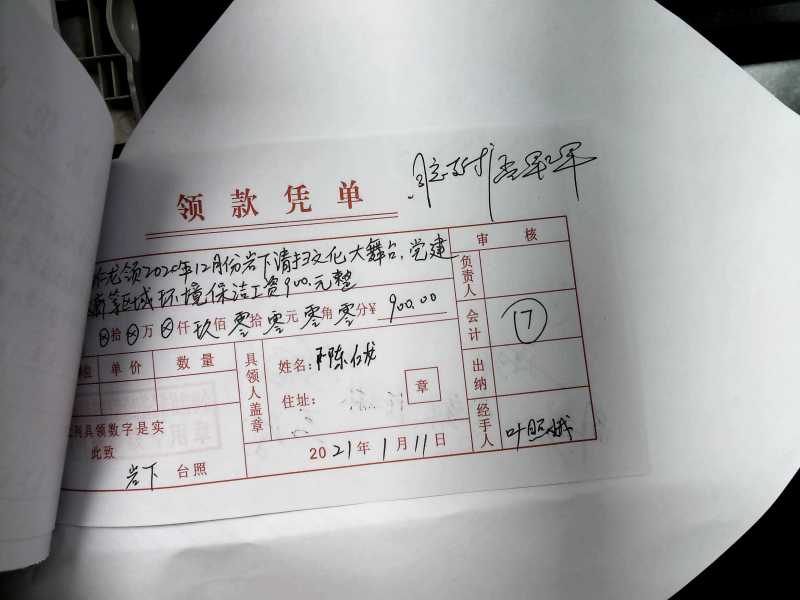 领款凭单
龙领2020年12月份岩下清扫文化大舞台,党建
等区域环境保洁工资900.元整
⊗拾⊗万⊗仟玖佰零拾零元零角零分¥ 900.00
审核
负责人
会计 17
出纳
经手人
位 单价 数量
具领人盖章
姓名: 陈仁龙
住址:
章
列具领数字是实
此致
岩下 台照
2021年1月11日